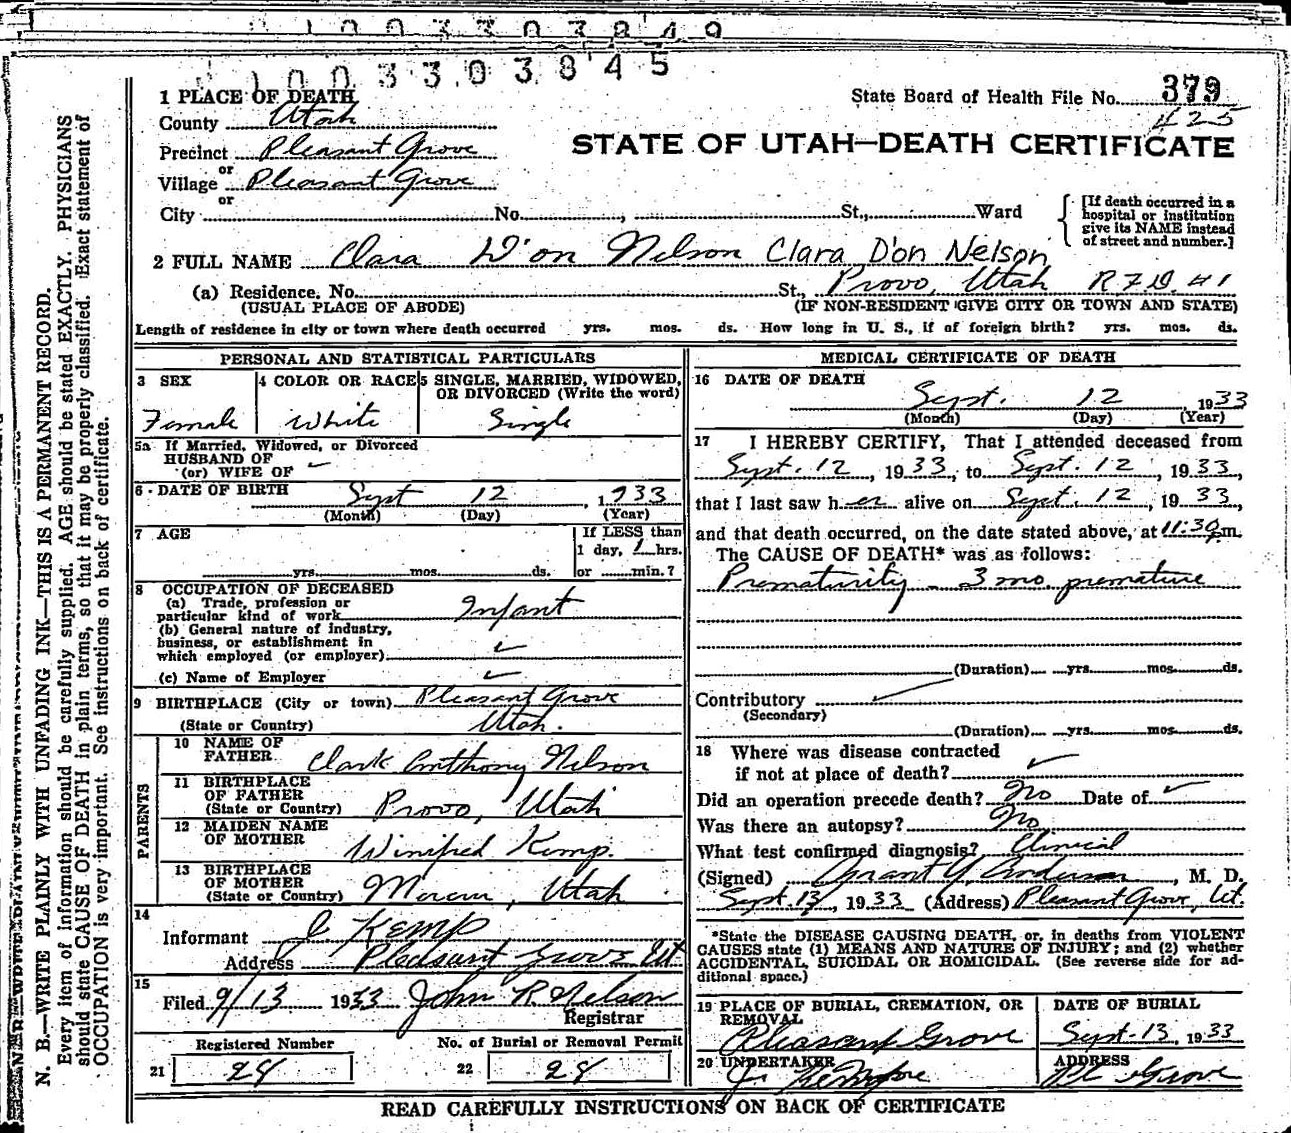 1003303849
1003303845
1 PLACE OF DEATH
State Board of Health File No. 379
425
County Utah
STATE OF UTAH—DEATH CERTIFICATE
Precinct Pleasant Grove
or
Village Pleasant Grove
or
City No. , St., Ward
[If death occurred in a
hospital or institution
give its NAME instead
of street and number.]
2 FULL NAME Clara D'on Nelson Clara D'on Nelson
(a) Residence. No. St., Provo, Utah R F D #1
(USUAL PLACE OF ABODE) (IF NON-RESIDENT GIVE CITY OR TOWN AND STATE)
Length of residence in city or town where death occurred yrs. mos. ds. How long in U. S., if of foreign birth? yrs. mos. ds.
PERSONAL AND STATISTICAL PARTICULARS
3 SEX
Female
4 COLOR OR RACE
White
5 SINGLE, MARRIED, WIDOWED,
OR DIVORCED (Write the word)
Single
5a If Married, Widowed, or Divorced
HUSBAND OF
(or) WIFE OF
6 - DATE OF BIRTH Sept 12 , 1933
(Month) (Day) (Year)
7 AGE
yrs. mos. ds.
If LESS than
1 day, 1 hrs.
or min.?
8 OCCUPATION OF DECEASED
(a) Trade, profession or
particular kind of work Infant
(b) General nature of industry,
business, or establishment in
which employed (or employer)
(c) Name of Employer
9 BIRTHPLACE (City or town) Pleasant Grove
(State or Country) Utah.
PARENTS
10 NAME OF
FATHER Clark Anthony Nelson
11 BIRTHPLACE
OF FATHER
(State or Country) Provo, Utah
12 MAIDEN NAME
OF MOTHER Winifred Kemp.
13 BIRTHPLACE
OF MOTHER
(State or Country) Utah
14
Informant J Kemp
Address Pleasant Grove Ut.
15
Filed 9/13 1933 John R. Nelson
Registrar
Registered Number No. of Burial or Removal Permit
21 28 22 28
MEDICAL CERTIFICATE OF DEATH
16 DATE OF DEATH
Sept. 12 1933
(Month) (Day) (Year)
17 I HEREBY CERTIFY, That I attended deceased from
Sept. 12, 1933, to Sept. 12, 1933,
that I last saw her alive on Sept. 12, 1933,
and that death occurred, on the date stated above, at 11:30 p.m.
The CAUSE OF DEATH* was as follows:
Prematurity - 3 mo. premature
(Duration) yrs. mos. ds.
Contributory
(Secondary)
(Duration) yrs. mos. ds.
18 Where was disease contracted
if not at place of death?
Did an operation precede death? No Date of
Was there an autopsy? No
What test confirmed diagnosis? Clinical
(Signed) Grant Y. Anderson, M. D.
Sept. 13, 1933 (Address) Pleasant Grove, Ut.
*State the DISEASE CAUSING DEATH, or, in deaths from VIOLENT
CAUSES state (1) MEANS AND NATURE OF INJURY; and (2) whether
ACCIDENTAL, SUICIDAL OR HOMICIDAL. (See reverse side for ad-
ditional space.)
19 PLACE OF BURIAL, CREMATION, OR
REMOVAL
Pleasant Grove
DATE OF BURIAL
Sept. 13, 1933
20 UNDERTAKER
J.
ADDRESS
Grove
READ CAREFULLY INSTRUCTIONS ON BACK OF CERTIFICATE
N. B.—WRITE PLAINLY WITH UNFADING INK—THIS IS A PERMANENT RECORD.
Every item of information should be carefully supplied. AGE should be stated EXACTLY. PHYSICIANS
should state CAUSE OF DEATH in plain terms, so that it may be properly classified. Exact statement of
OCCUPATION is very important. See instructions on back of certificate.